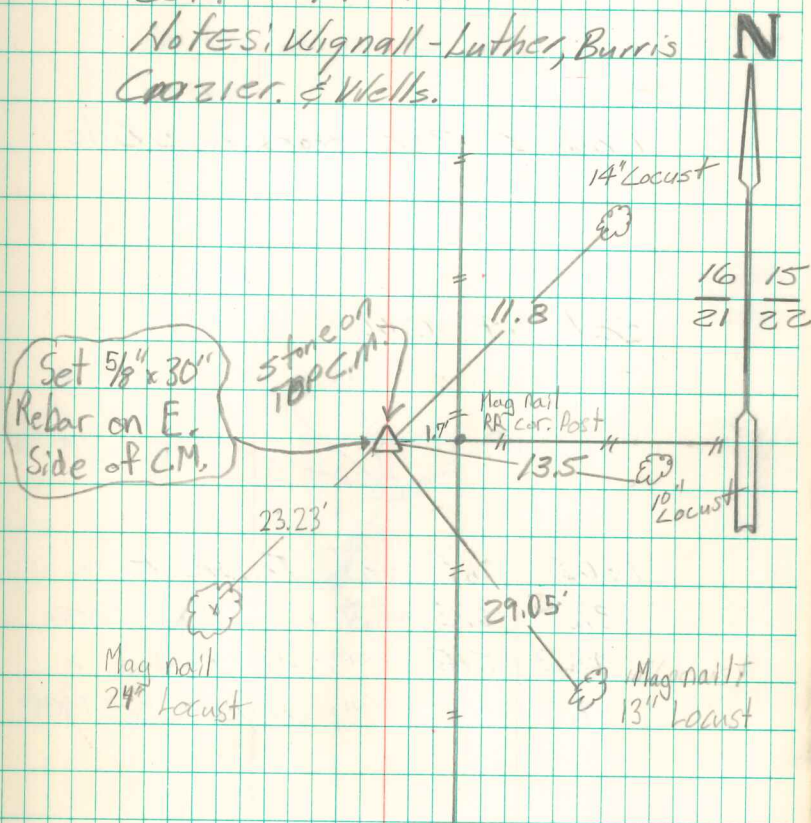 Notes: Wignall-Luther, Burris
Crozier. & Wells.
N
14" Locust
16 | 15
21 | 22
11.8
Stone on
TOP C.M.
Set 5/8" x 30"
Rebar on E.
Side of C.M.
Mag nail
RR cor. Post
1.7'
13.5
10"
Locust
23.23'
29.05'
Mag nail
24" Locust
Mag nail
13" Locust